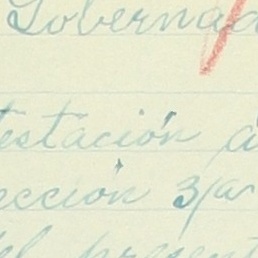 Gobernad
testación a
ección 3/a
del present